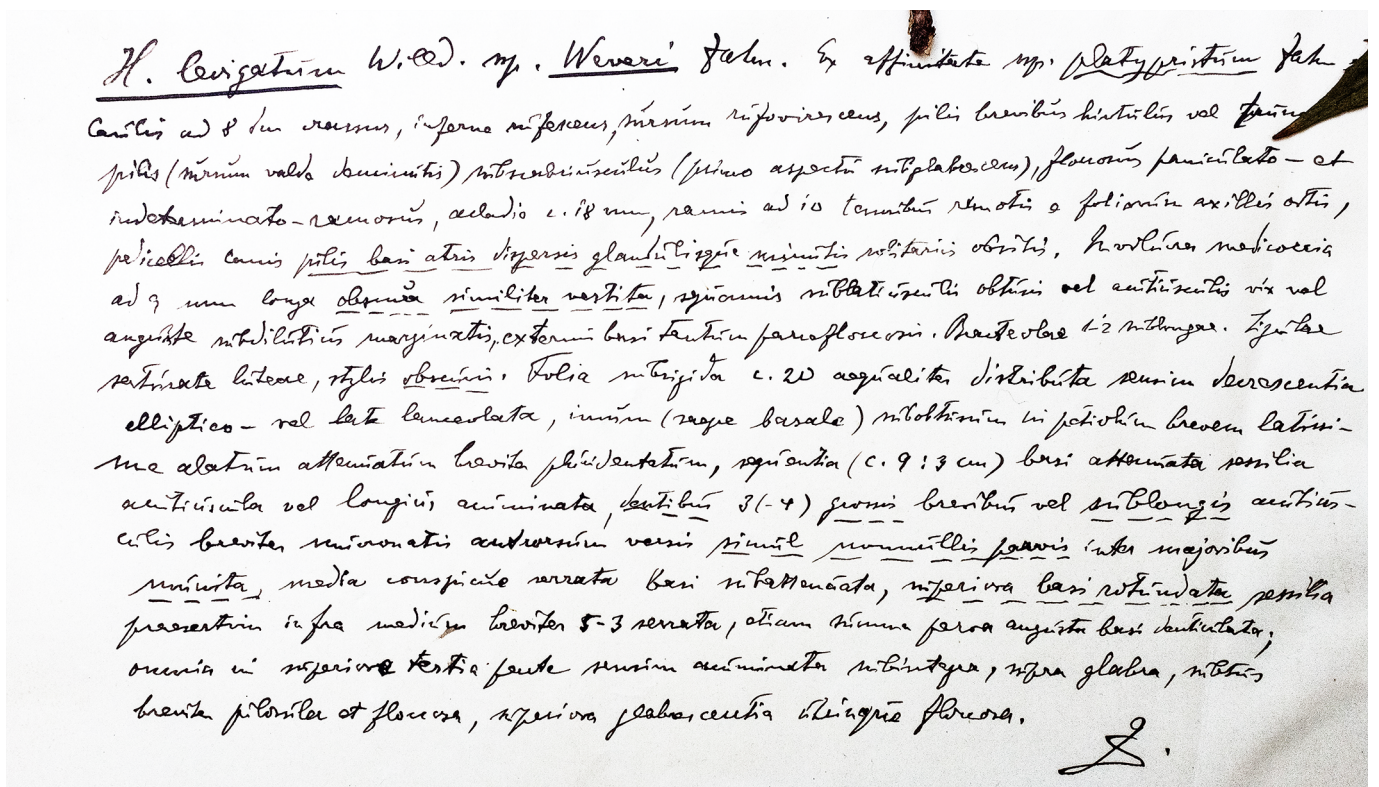 H. levigatum Willd. sp. Weveri Zahn. Ex affinitate sp. platypristum Zahn
Caulis ad 8 dm crassus, inferne rufescens, sursum rufovirescens, pilis brevibus hirtulus vel
pilis (sursum valde deminutis) subscabriusculus (primo aspectu subglabrescens), floccosus paniculato- et
indeterminato-ramosus, acladio c. 18 mm, ramis ad 10 tenuibus remotis e foliorum axillis ortis,
pedicellis canis pilis basi atris dispersis glandulisque minutis solitariis obsitis. Involucra mediocria
ad 9 mm longa obscura similiter vestita, squamis sublatiusculis obtusis vel acutiusculis vix vel
anguste subdilutius marginatis, externis basi tantum parcefloccosis. Bracteolae 1-2 sublongae. Ligulae
saturate luteae, stylis obscuris. Folia subrigida c. 20 aequaliter distributa sensim decrescentia
elliptico- vel late lanceolata, imum (saepe basale) subobtusum in petiolum brevem latissi-
me alatum attenuatum breviter pluridentatum, sequentia (c. 9 : 3 cm) basi attenuata sessilia
acutiuscula vel longius acuminata, dentibus 3(-4) grossis brevibus vel sublongis acutius-
culis breviter mucronatis antrorsum versis simul nonnullis parvis inter majoribus
munita, media conspicue serrata basi subattenuata, superiora basi rotundata sessilia
praesertim infra medium breviter 5-3 serrata, etiam summa parva angusta basi denticulata;
omnia in superiore tertia parte sensim acuminata subintegra, supra glabra, subtus
breviter pilosula et floccosa, superiora glabrescentia utrinque floccosa.
Z.